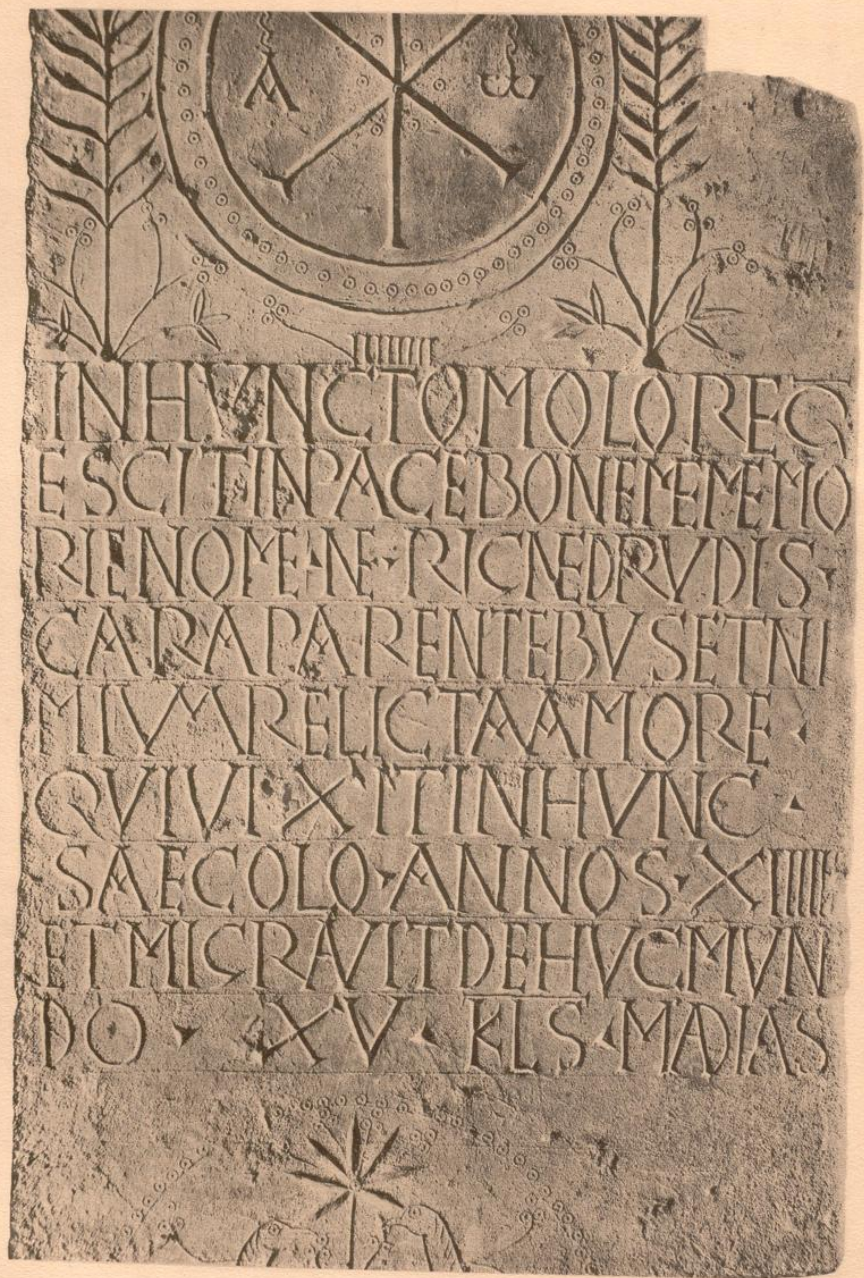 A Ω
INHVNCTOMOLOREQ
ESCITINPACEBONEMEMEMO
RIENOME·NE·RICNEDRVDIS·
CARAPARENTEBVSETNI
MIVMRELICTAAMORE·
QVIVIXITINHVNC·
SAECOLO·ANNOS·XIIIII
ETMICRAVITDEHVCMVN
DO·XV·KLS·MADIAS